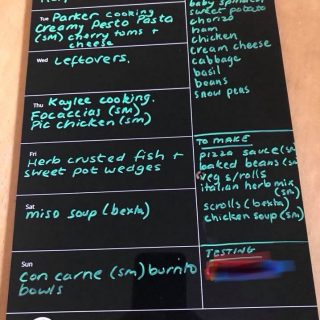 Tue Parker cooking
Creamy Pesto Pasta
(SM) cherry toms +
cheese
Wed
Leftovers.
Thu Kaylee cooking.
Focaccias (SM)
Pic chicken (SM)
Fri
Herb crusted fish +
sweet pot wedges
Sat
miso soup (bexta)
Sun
Con carne (SM) burrito
bowls
baby spinach
sweet potato
chorizo
ham
chicken
cream cheese
cabbage
basil
beans
snow peas
TO MAKE
pizza sauce (SM
baked beans (SM
veg s/rolls
italian herb mix
(SM)
scrolls (bexta)
chicken soup (SM)
TESTING